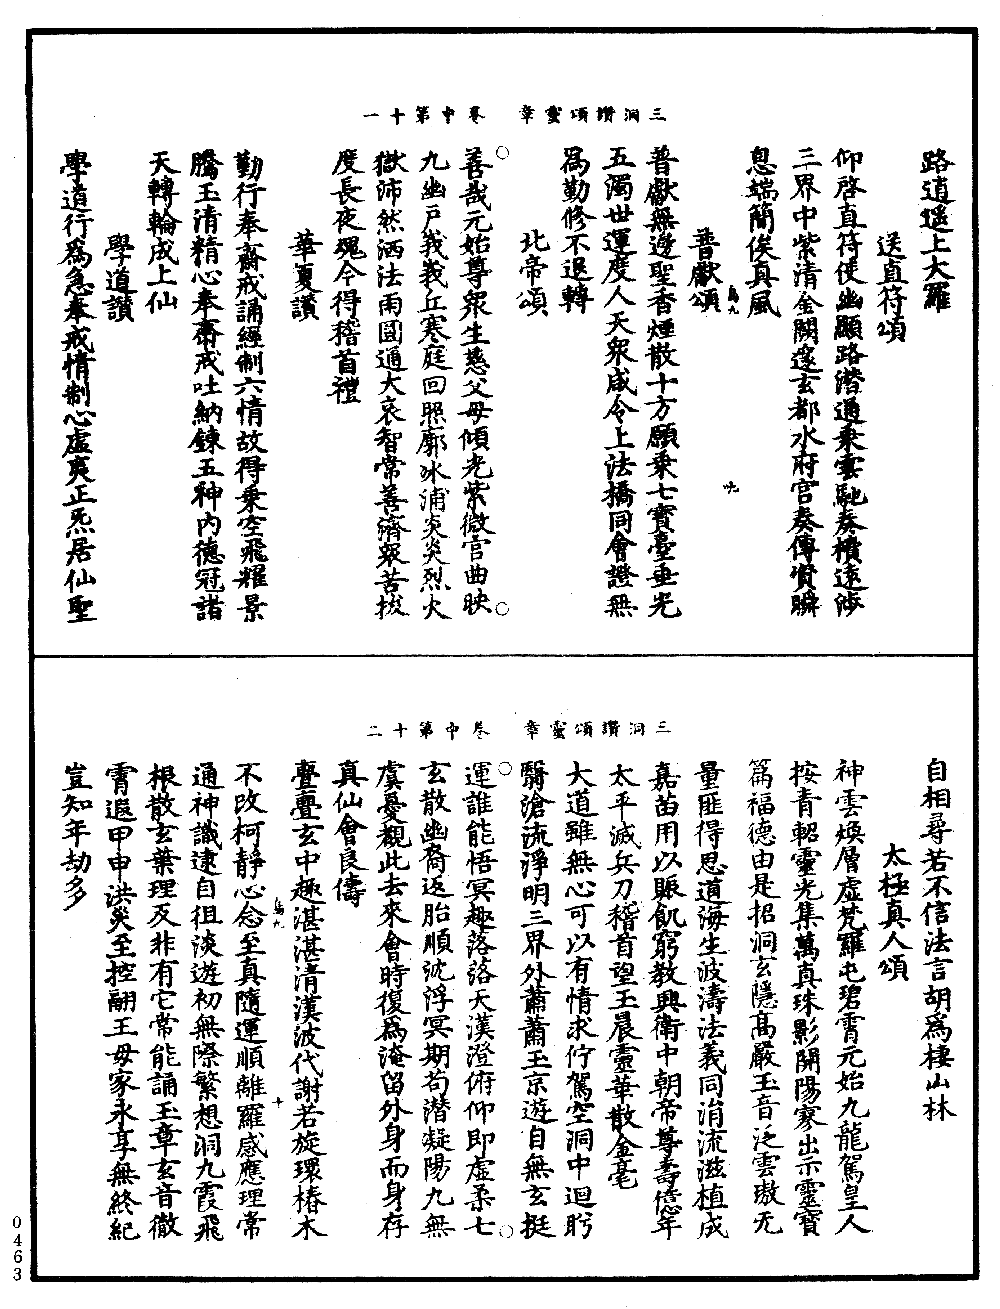 三洞讚頌靈章　卷中第十一
路逍遙上大羅
送真符頌
仰啓真符使幽顯路潛通乘雲馳奏櫝遠涉
三界中紫清金闕邃玄都水府宫奏傳賞瞬
息端簡俟真風
普獻頌
普獻無邊聖香煙散十方願乘七寶臺垂光
五濁世運度人天衆咸令上法橋同會證無
爲勤修不退轉
北帝頌
善哉元始尊衆生慈父母傾光紫微宫曲映
九幽戶義義丘寒庭回照廓冰浦炎炎烈火
獄沛然洒法雨圓通大哀智常善濟衆苦拔
度長夜魂今得稽首禮
華夏讚
勤行奉齋戒誦經制六情故得乘空飛耀景
騰玉清精心奉齋戒吐納鍊五神内德冠諸
天轉輪成上仙
學道讚
學道行爲急奉戒情制心虛夷正炁居仙聖
三洞讚頌靈章　卷中第十二
自相尋若不信法言胡爲棲山林
太極真人頌
神雲煥層虛梵羅屯碧霄元始九龍駕皇人
按青軺靈光集萬真珠影開陽寥出示靈寶
篇福德由是招洞玄隱高嚴玉音泛雲璈无
量匪得思道海生波濤法義同涓流滋植成
嘉苗用以賑飢窮教興衛中朝帝尊壽億年
太平滅兵刀稽首望玉晨靈華散金毫
大道雖無心可以有情求佇駕空洞中迴眄
翳滄流淨明三界外蕭蕭玉京遊自無玄挺
運誰能悟冥趣落落天漢澄俯仰即虛柔七
玄散幽裔返胎順沈浮冥期苟潛凝陽九無
虞憂觀此去來會時復爲淹留外身而身存
真仙會良儔
亹亹玄中趣湛湛清漢波代謝若旋環樁木
不改柯靜心念至真隨運順離羅感應理常
通神識逮自徂淡遊初無際繁想洞九霞飛
根散玄葉理及非有它常能誦玉章玄音徹
霄遐甲申洪災至控翮王母家永享無終紀
豈知年劫多
0463